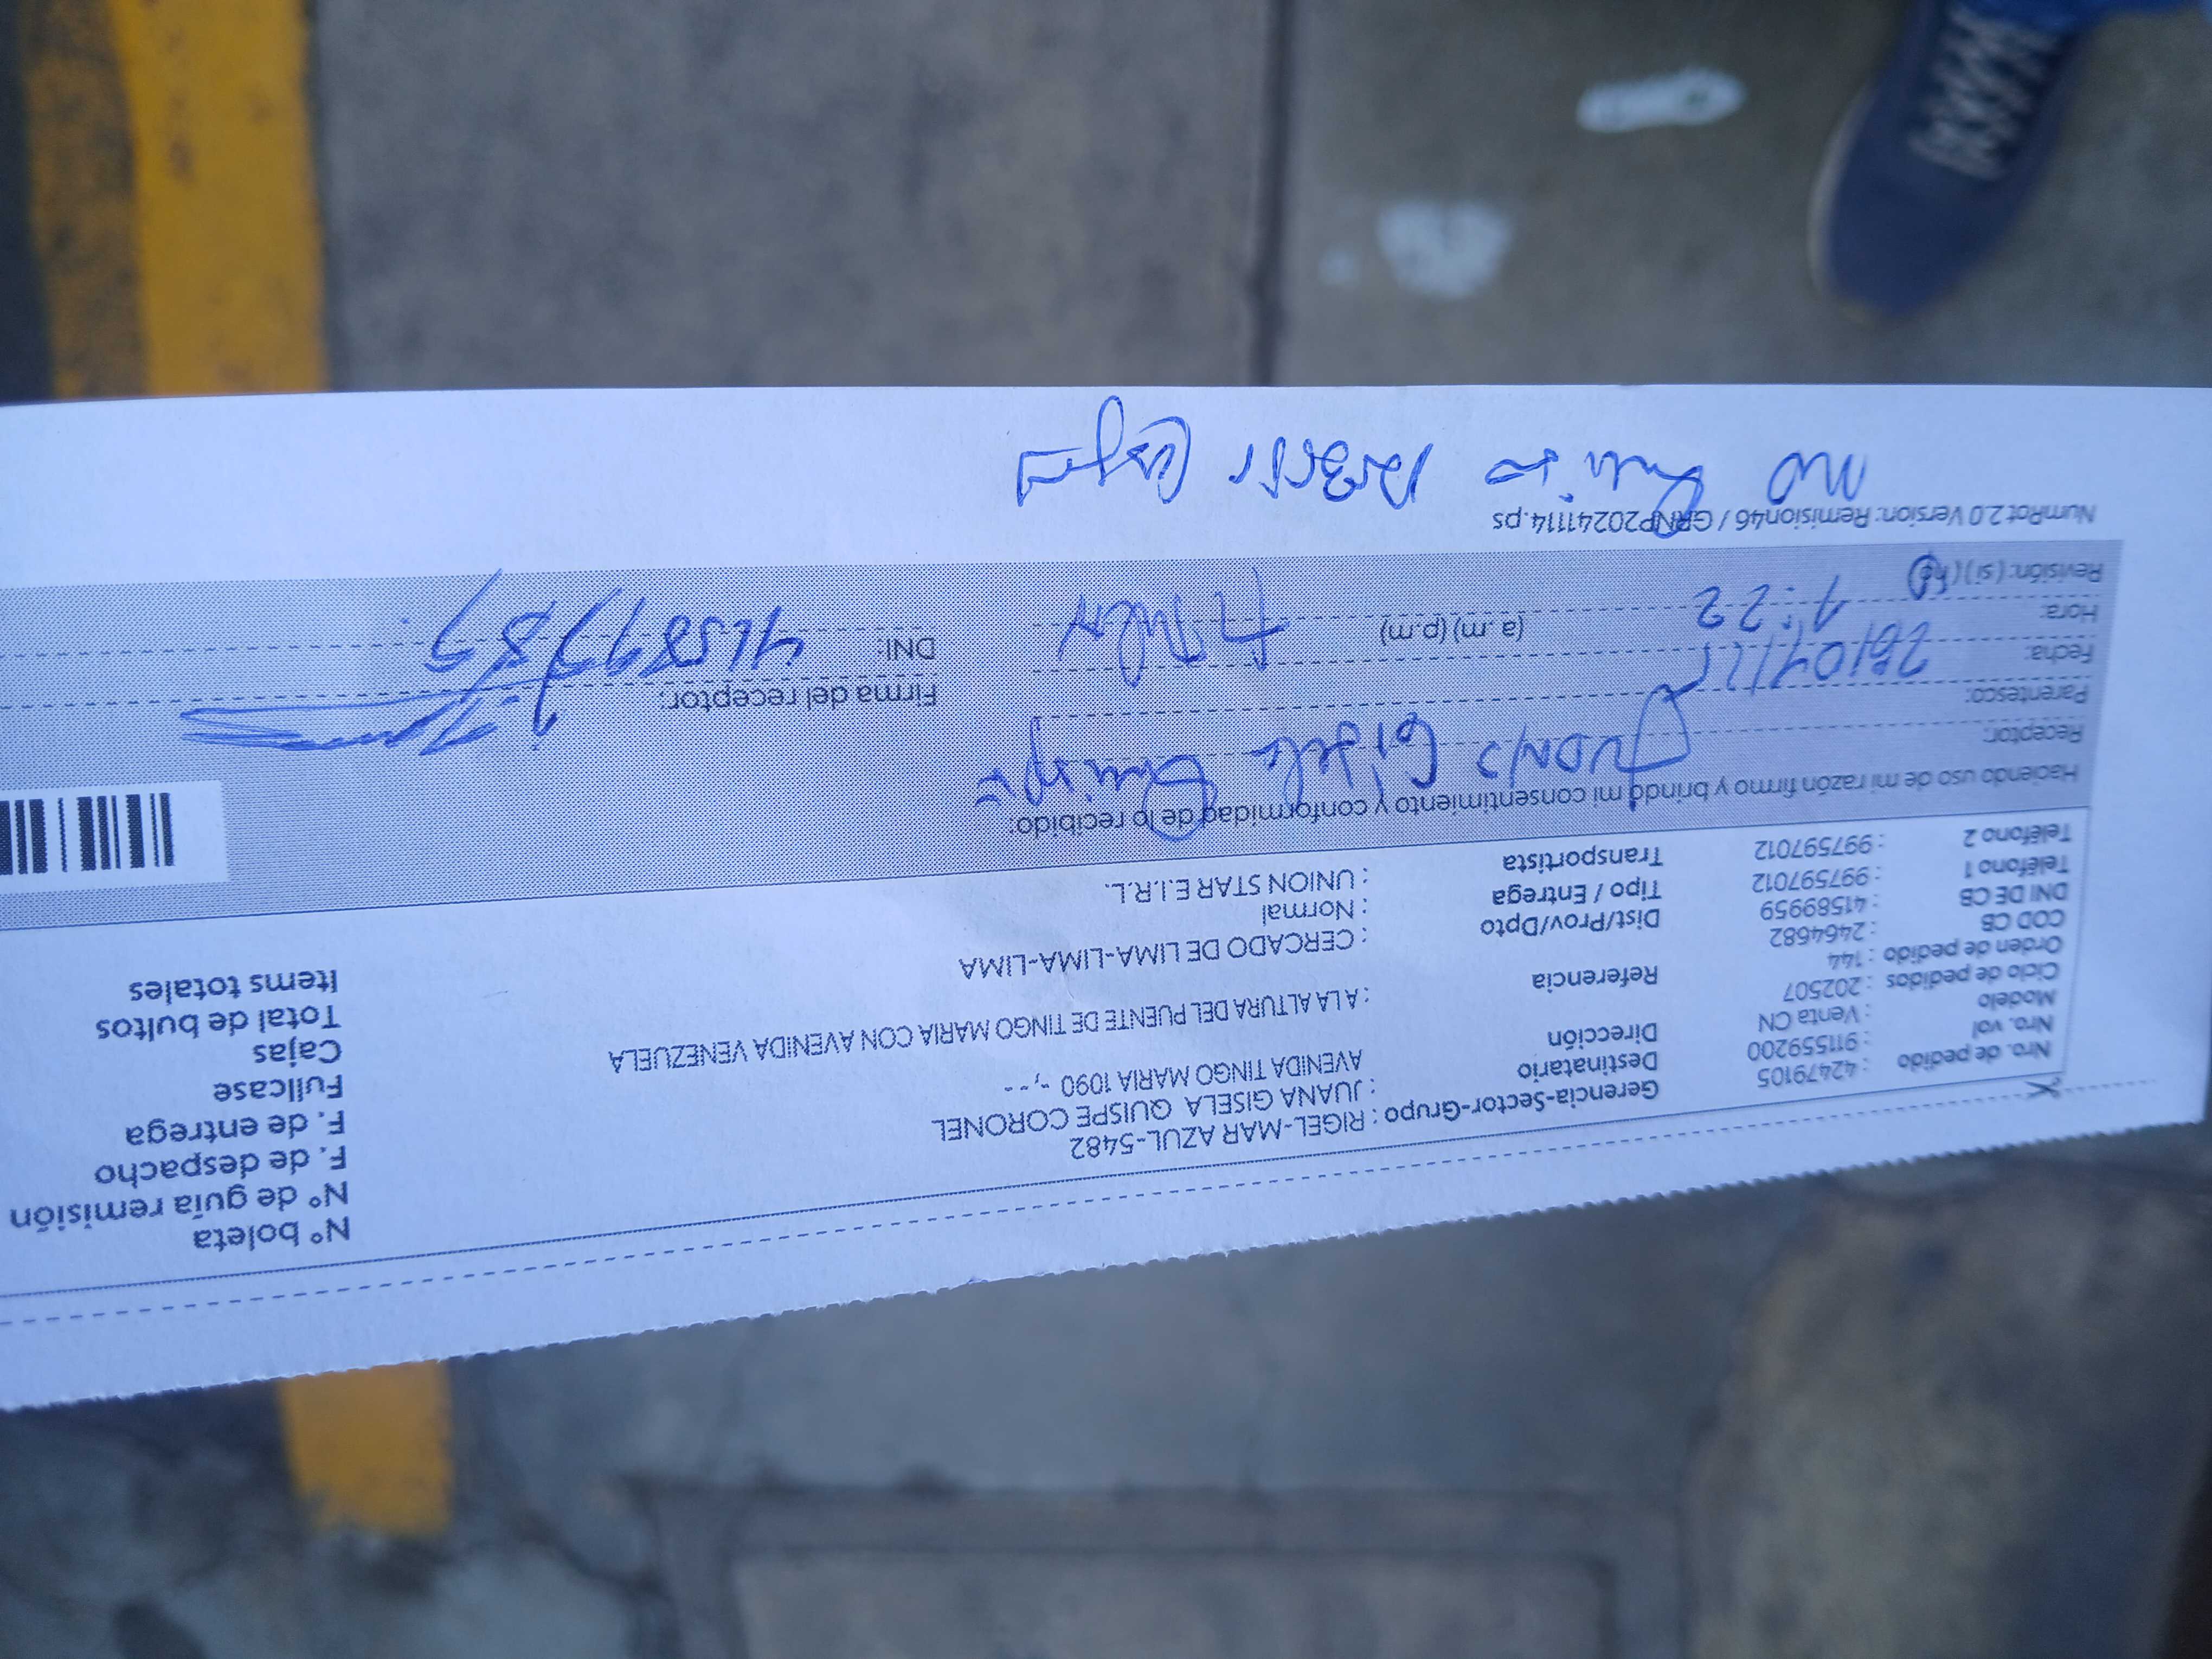 Nº boleta
Nº de guía remisión
F. de despacho
F. de entrega
Fullcase
Cajas
Total de bultos
Items totales
Gerencia-Sector-Grupo : RIGEL-MAR AZUL-5482
Destinatario : JUANA GISELA QUISPE CORONEL
Dirección AVENIDA TINGO MARIA 1090 -, - -
Referencia : A LA ALTURA DEL PUENTE DE TINGO MARIA CON AVENIDA VENEZUELA
Dist/Prov/Dpto : CERCADO DE LIMA-LIMA-LIMA
Tipo / Entrega : Normal
Transportista : UNION STAR E.I.R.L.
Nro. de pedido : 42479105
Nro. vol : 911559200
Modelo : Venta CN
Ciclo de pedidos : 202507
Orden de pedido : 144
COD CB : 2464682
DNI DE CB : 41589959
Teléfono 1 : 997597012
Teléfono 2 : 997597012
Haciendo uso de mi razón firmo y brindo mi consentimiento y conformidad de lo recibido:
Receptor:
Parentesco:
Fecha:
Hora: 1:22 (a.m) (p.m)
Revisión: (si) (no)
Firma del receptor:
DNI:
NumRot 2.0 Version: Remision46 / GRNP20241114.ps